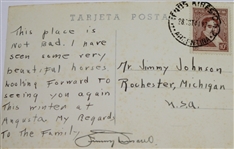 TARJETA POSTAL
This place is
Not Bad. I have
seen some very
beautiful horses
Looking Forward To
seeing you again
This winter at
Augusta My Regards
To The Family
Mr Jimmy Johnson
Rochester, Michigan
U.S.A.